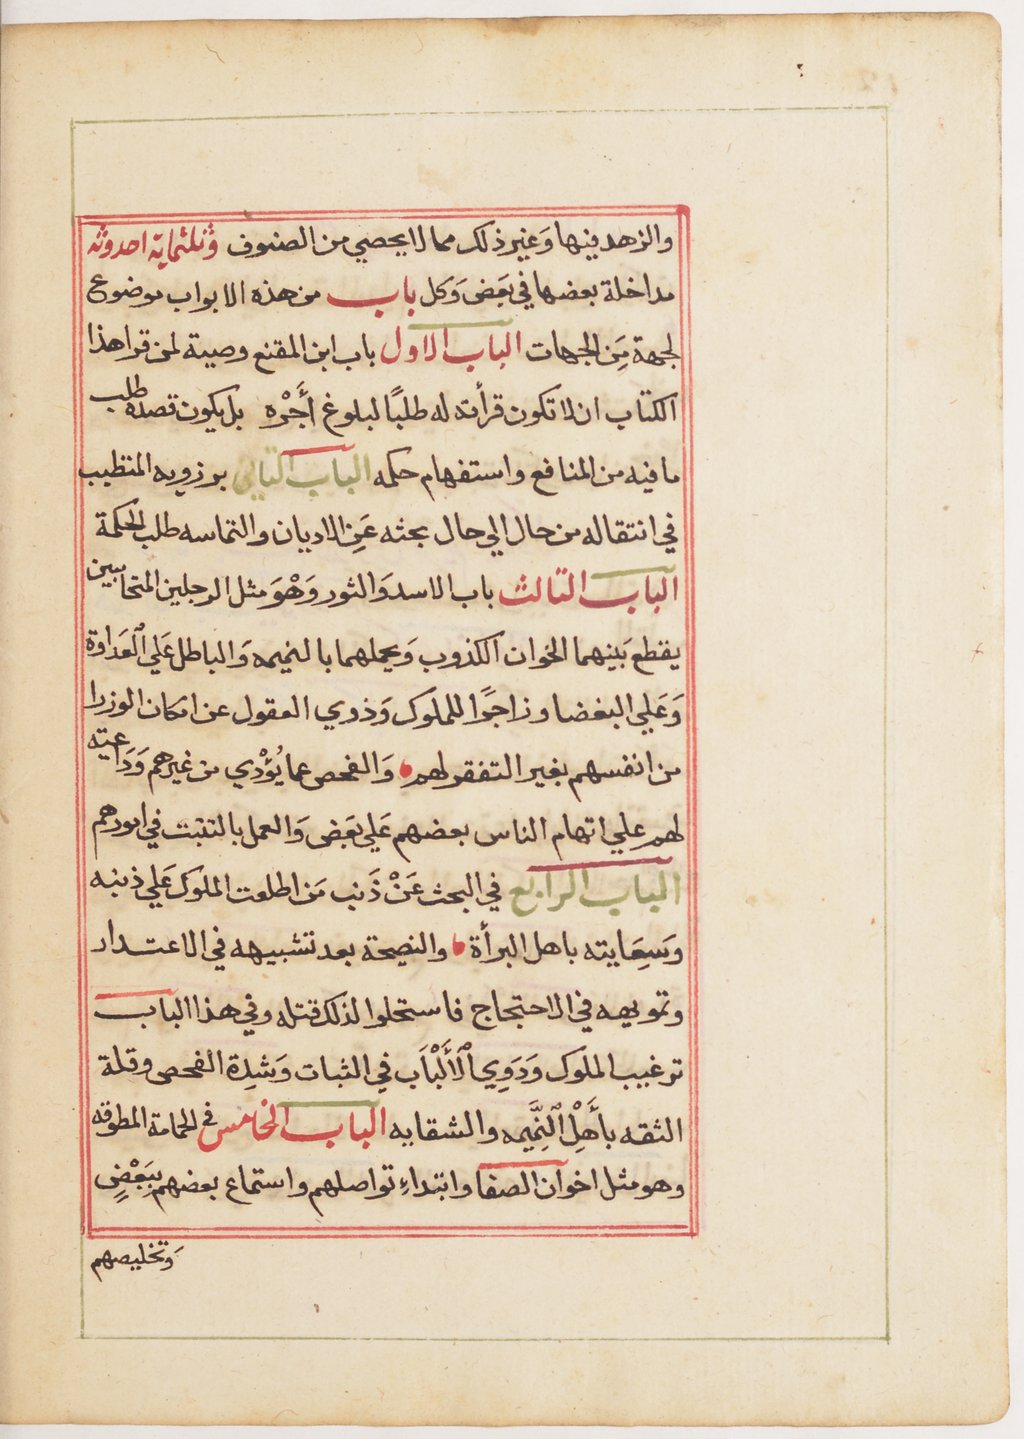 والزهد فيها وَغير ذلك مما لا يحصي من الصنوف وثلثماية احدوثه
مداخلة بعضها في بَعَض وَكل باب من هذه الابواب موضوع
لجهة مَِن الجهات الباب الاول باب ابن المقنع وصية لمن قرا هذا
الكتاب ان لا تكون قرأته له طلبًا لبلوغ أَجْره بل يكون قصده طلب
ما فيه من المنافع واستفهام حكمه الباب الثاني برزويه المتطيب
في انتقاله من حال الي حال بحثه عَنِ الاديان والتماسه طلب الحكمة
الباب الثالث باب الاسد وَالثور وَهْوَ مثل الرجلين المتحابين
يقطع بَينهما الخوان الكذوب وَيحملهما بالنميمه وَالباطل عَلي العَداوة
وَعَلي البغضا وزاجرًا للملوك وَذوي العقول عن امكان الوزرا
من انفسهم بغير التفقر لهم وَالفحص عما يُؤْذي من غيرهم وَدَاعيته
لهم علي اتهام الناس بعضهم عَلي بَعَض وَالعمل بالتثبت في امورهم
الباب الرابع في البحث عَنْ ذَنب مَن اطلعت الملوك عَلي ذنبه
وَسِعَايته باهل البرأة والنصيحة بعد تشبيهه في الاعتدار
وتمويهه في الاحتجاج فاستحلوا لذلك قتله وفي هذا الباب
ترغيب الملوك وَدَوِي اْلأَلْبَاَب في الثبات وَشدِة الفحص وقلة
الثقه بأَهْلِ اْلنَِّميمه والشقايه الباب الخامس في الحمامة المطوقه
وهو مثل اخوان الصفا وابتداءِ تواصلهم واستماع بعضهم بِبَعْضٍ
وَتخليصهم